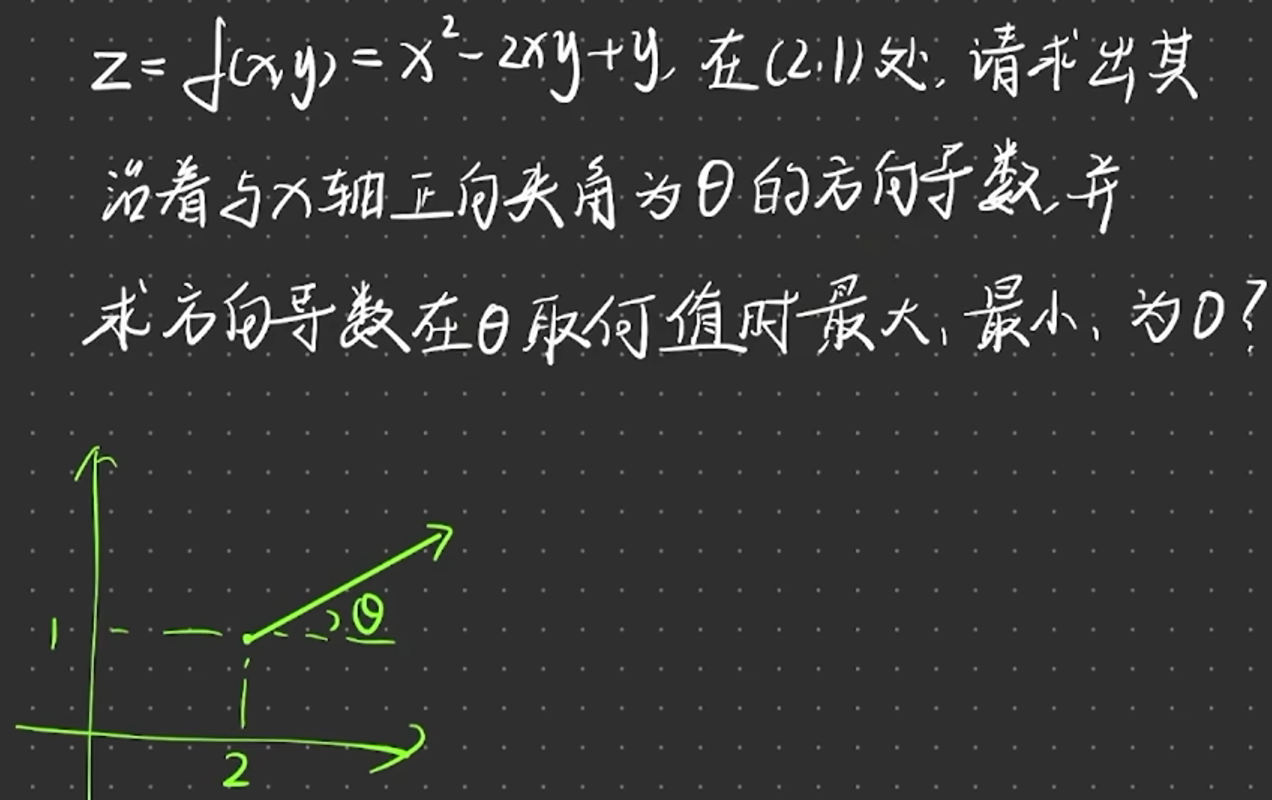 z=f(x,y)=x²-2xy+y, 在(2,1)处, 请求出其
沿着与x轴正向夹角为θ的方向导数,并
求方向导数在θ取何值时最大、最小、为0?
1
θ
2